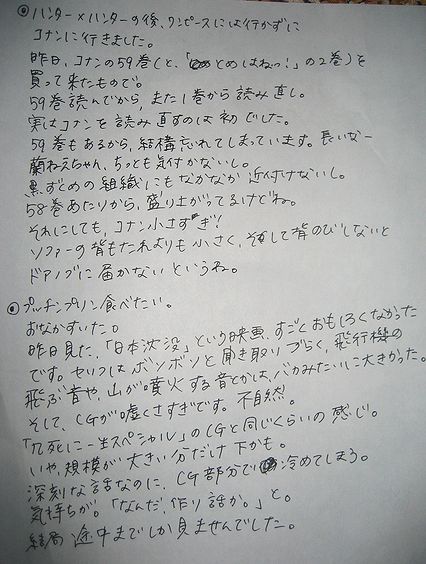 ◎ハンター×ハンターの後、ワンピースには行かずに
コナンに行きました。
昨日、コナンの59巻(と、「とめはねっ!」の2巻)を
買って来たもので。
59巻読んでから、また1巻から読み直し。
実はコナンを読み直すのは初でした。
59巻もあるから、結構忘れてしまっています。長いなー
蘭ねえちゃん、ちっとも気付かないし。
黒ずくめの組織にもなかなか近付けないし。
58巻あたりから、盛り上がってるけどね。
それにしても、コナン小さすぎ!
ソファーの背もたれよりも小さく、そして背のびしないと
ドアノブに届かないというね。
◎プッチンプリン食べたい。
おなかすいた。
昨日見た、「日本沈没」という映画、すごくおもしろくなかった
です。セリフはボソボソと聞き取りづらく、飛行機の
飛ぶ音や、山が噴火する音とかは、バカみたいに大きかった。
そして、CGが嘘くさすぎです。不自然。
「九死に一生スペシャル」のCGと同じくらいの感じ。
いや、規模が大きい分だけ下かも。
深刻な話なのに、CG部分で冷めてしまう。
気持ちが。「なんだ、作り話か。」と。
結局途中までしか見ませんでした。